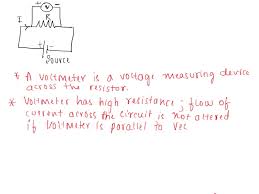 V
I
R
Source
* A voltmeter is a voltage measuring device
across the resistor.
* Voltmeter has high resistance ; flow of
current across the circuit is not altered
if voltmeter is parallel to Vec